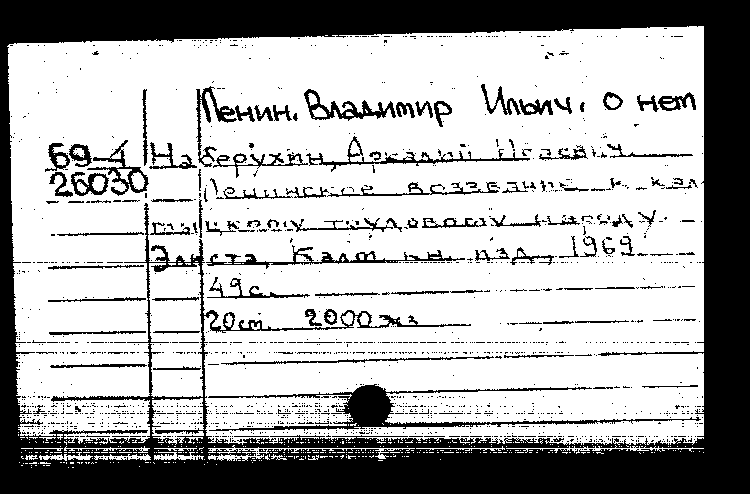 Ленин, Владимир Ильич. о нем
69-4 Наберухин, Аркадий Исаевич.
26030 Ленинское воззвание к кал-
мыцкому трудовому народу. -
Элиста, Калм. кн. изд., 1969.
49 с.
20 см. 2000 экз